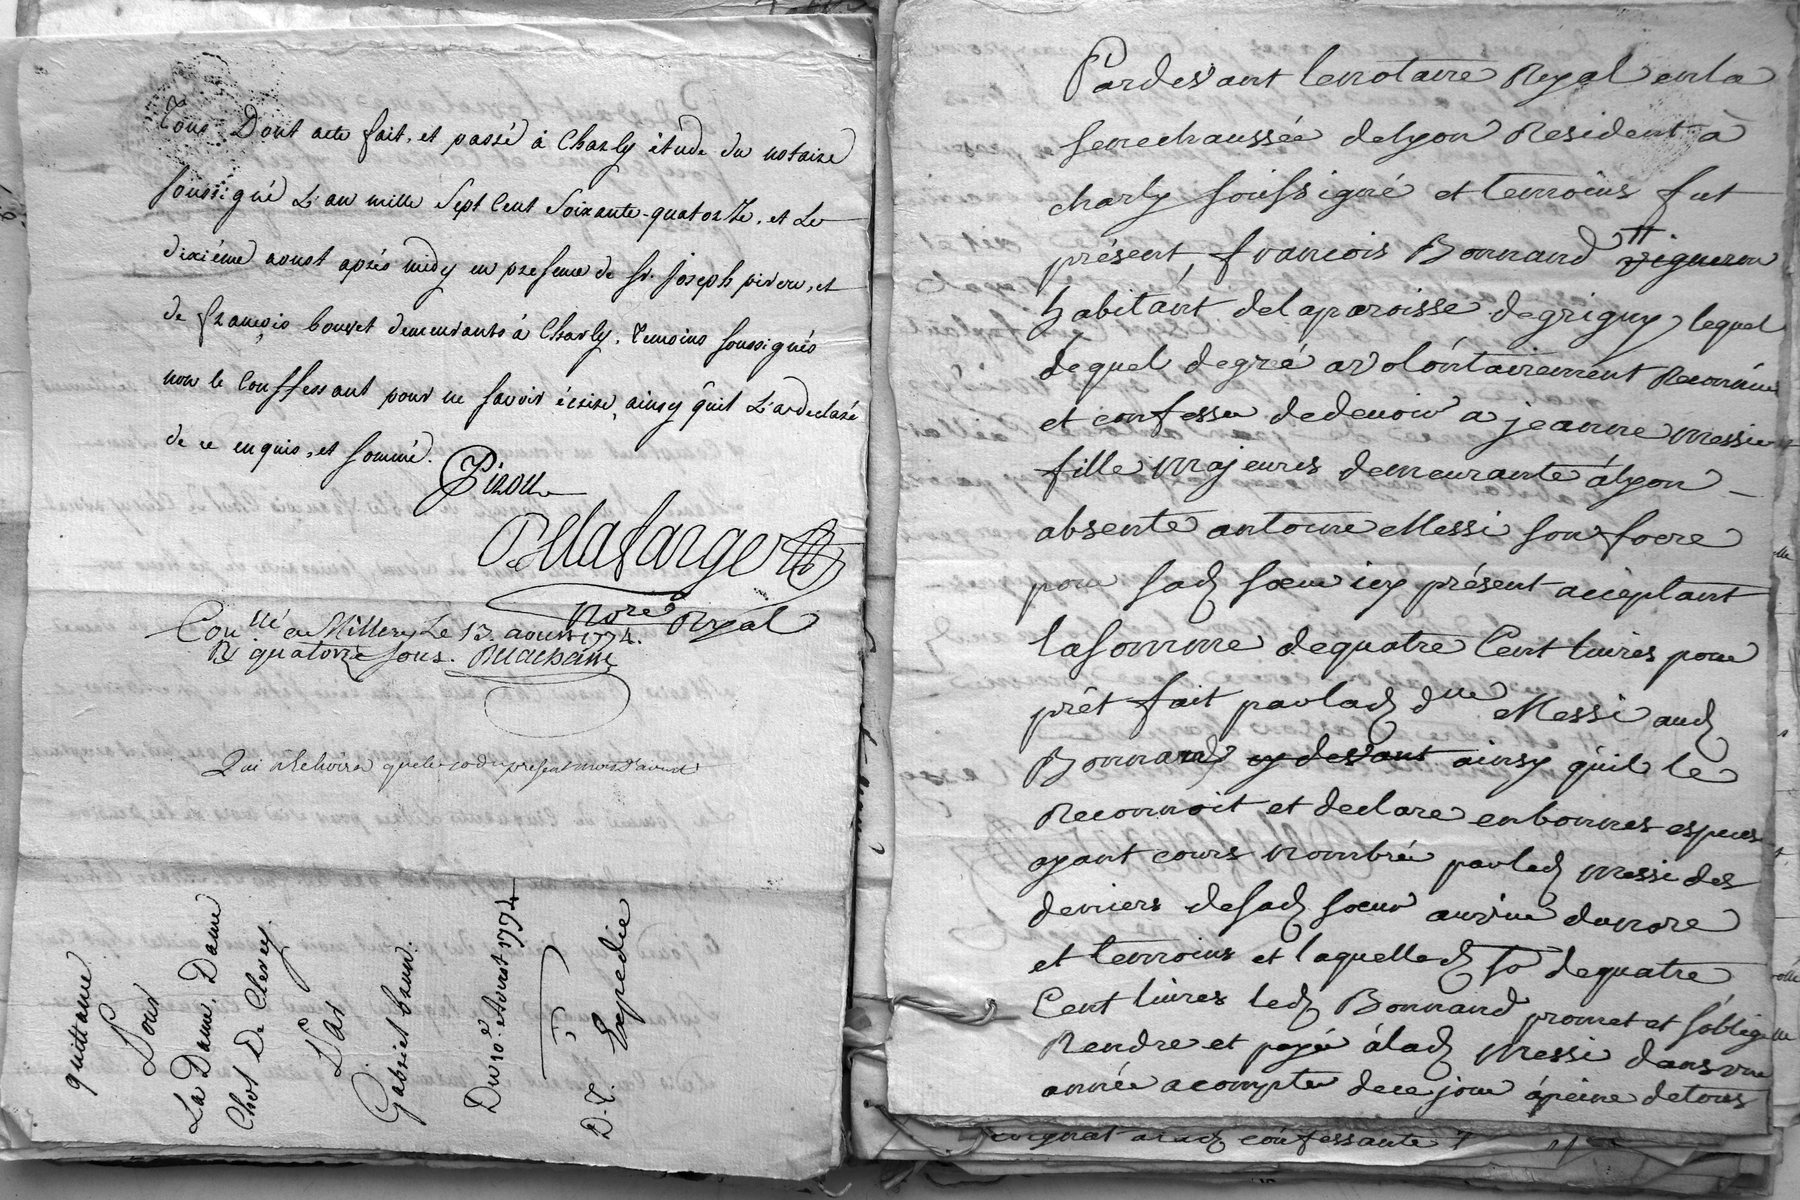 Tous Dont acte fait, et passé à Charly étude du notaire
soussigné L'an mille Sept Cent Soixante-quatorze, et Le
dixiéme aoust aprés midy en presence de Sr. Joseph pizou, et
de françois bouvet demeurants à Charly, temoins soussignés
non le Conffessant pour ne savoir écrire, ainsy qu'il L'a declaré
de ce enquis, et sommé.
Pizou
Delafarge
nore Royal
Conllé a Millery Le 13. aoust 1774.
R quatorze sous.
quittance
Pour
La Dame, Dame
Chol De Clercy
Par
Gabriel brun.
Du 10e. Aoust 1774
Expedie
D. T.
Pardevant le notaire Royal en la
senechaussée de lyon Resident à
charly soussigné et temoins fut
présent, françois Bonnand vigneron
habitant de la paroisse de grigny, lequel
de quel de gré a volontairement Reconnu
et confesse de devoir a jeanne messie
fille majeure demeurante à lyon
absente antoine Messi son frere
pour sad soeur icy présent acceptant
la somme de quatre Cent livres pour
prêt fait par lad dlle Messi aud
Bonnand cy devant ainsy qu'il le
Reconnoit et declare en bonnes especes
ayant cours nombrée par led messi des
deniers de sad soeur au vu du nore
et temoins et laquelle d so de quatre
Cent livres led Bonnand promet et s'oblige
Rendre et payé à lad Messi dans une
année a compter de ce jour à peine de tous
confessante